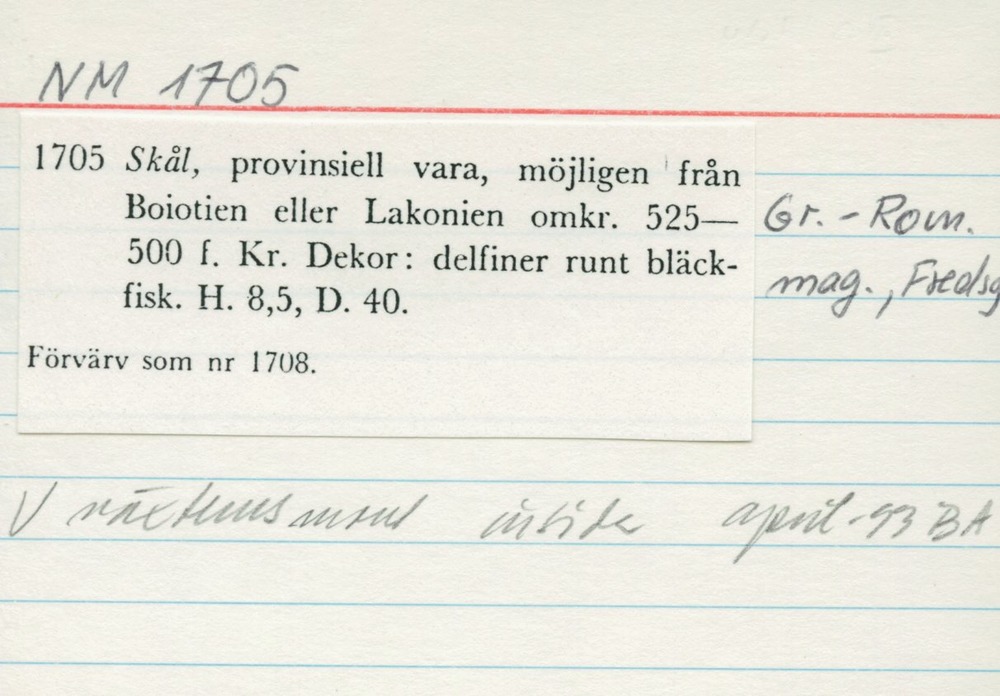 NM 1705
1705 Skål, provinsiell vara, möjligen från
Boiotien eller Lakonien omkr. 525—
500 f. Kr. Dekor: delfiner runt bläck-
fisk. H. 8,5, D. 40.
Förvärv som nr 1708.
Gr.-Rom.
mag., Fredsg
V insida april -93 BA